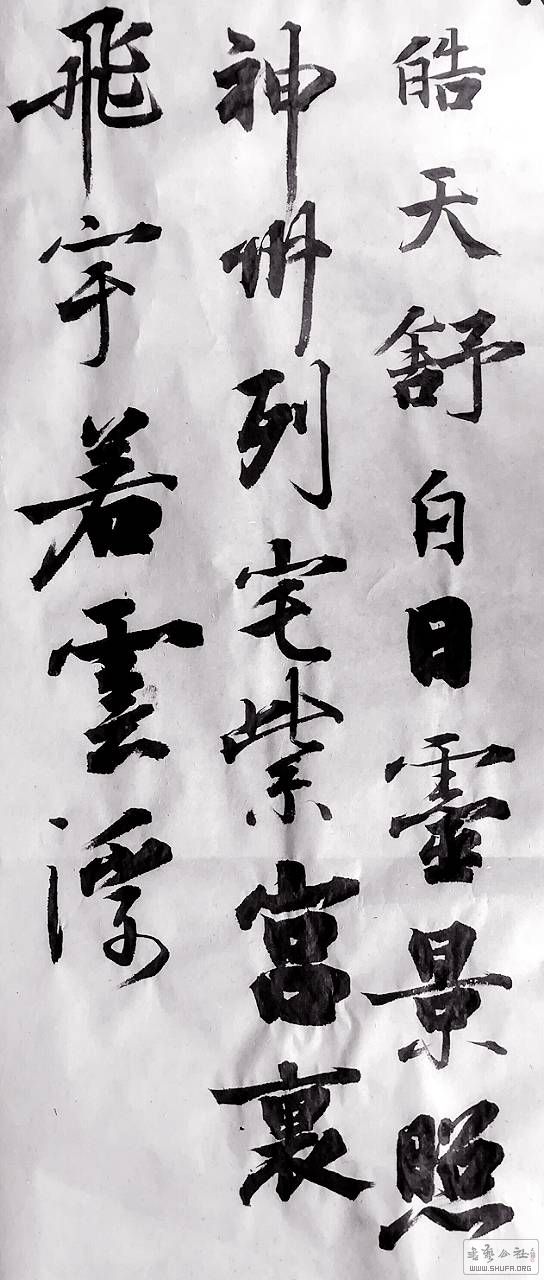 皓天舒白日靈景照
神州列宅紫宫裏
飛宇若雲浮
书艺公社
WWW.SHUFA.ORG